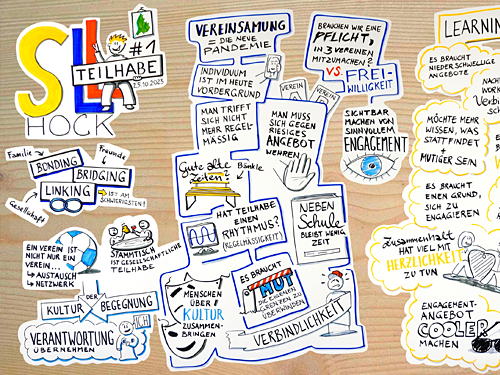 SLK
HOCK
#1
TEILHABE
25.10.2023
Familie
Freunde
BONDING
BRIDGING
LINKING
IST AM
SCHWIERIGSTEN!
Gesellschaft
EIN VEREIN IST
NICHT NUR EIN
VEREIN...
↳ AUSTAUSCH
↳ NETZWERK
STAMMTISCH
IST GESELLSCHAFTLICHE
TEILHABE
KULTUR DER BEGEGNUNG
VERANTWORTUNG
ÜBERNEHMEN
ICH
VEREINSAMUNG
= DIE NEUE
PANDEMIE
INDIVIDUUM
IST IM HEUTE
VORDERGRUND
MAN TRIFFT
SICH NICHT
MEHR REGEL-
MÄSSIG
MAN MUSS
SICH GEGEN
RIESIGES
ANGEBOT
WEHREN
Gute alte
Zeiten?
Bänkle
HAT TEILHABE
EINEN
RHYTHMUS?
(REGELMÄSSIGKEIT)
NEBEN
Schule
BLEIBT WENIG
ZEIT
MENSCHEN
ÜBER
KULTUR
ZUSAMMEN-
BRINGEN
ES BRAUCHT
MUT
DIE EIGENEN
GRENZEN ZU
ÜBERWINDEN
VERBINDLICHKEIT
BRAUCHEN WIR EINE
PFLICHT,
IN 3 VEREINEN
MITZUMACHEN?
VS. FREI-
WILLIGKEIT
VEREIN
VEREIN
SICHTBAR
MACHEN VON
SINNVOLLEM
ENGAGEMENT
LEARNIN
ES BRAUCHT
NIEDERSCHWELLIGE
ANGEBOTE
NACH
WORK
Verb
MÖCHTE MEHR
WISSEN, WAS
STATTFINDET
+
MUTIGER SEIN
ES BRAUCHT
EINEN GRUND,
SICH ZU
ENGAGIEREN
Zusammenhalt
HAT VIEL MIT
HERZLICHKEIT
ZU TUN
ENGAGEMENT-
ANGEBOT
COOLER
MACHEN